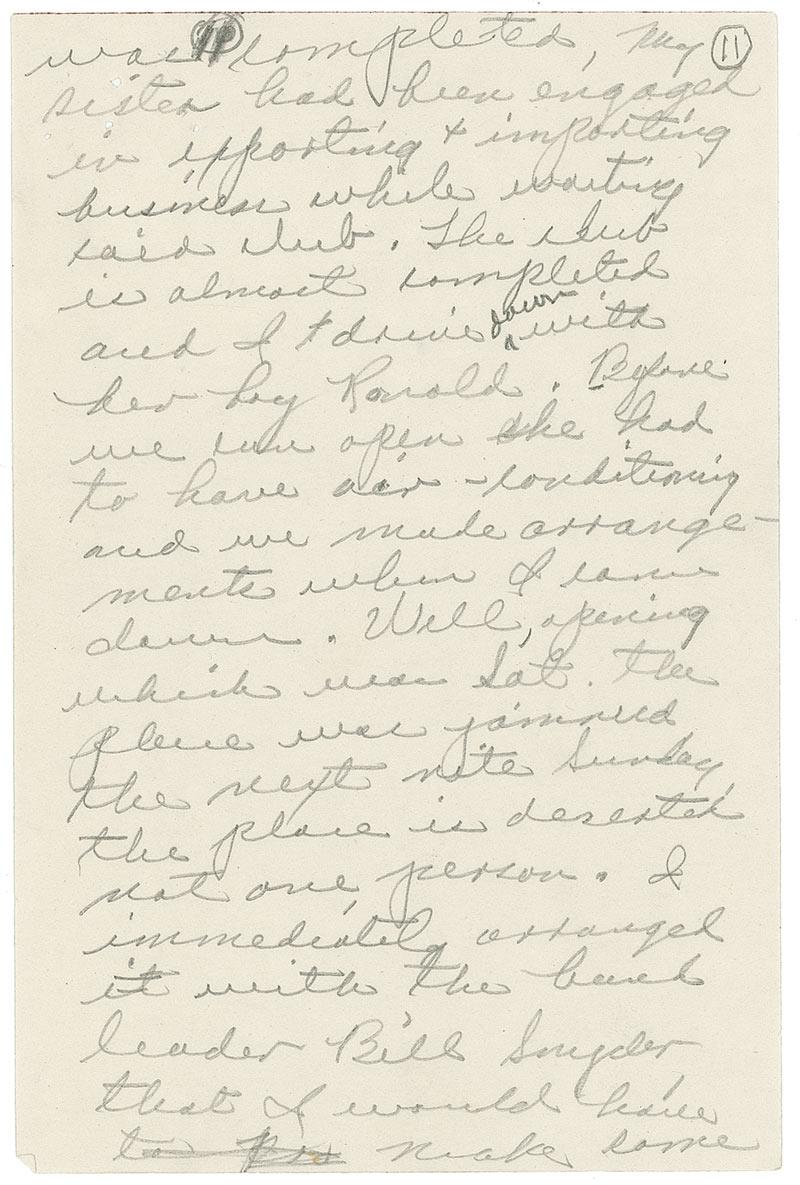 was completed, my 11
sister had been engaged
in exporting + importing
business while waiting
said club. The club
is almost completed
and I + drive down with
her boy Ronald. Before
we can open she had
to have air-conditioning
and we made arrange-
ments when I came
down. Well, opening
which was Sat. the
place was jammed
the next nite Sunday,
the place is deserted
not one person. I
immediately arranged
it with the band
leader Bill Snyder,
that I would have
to make some